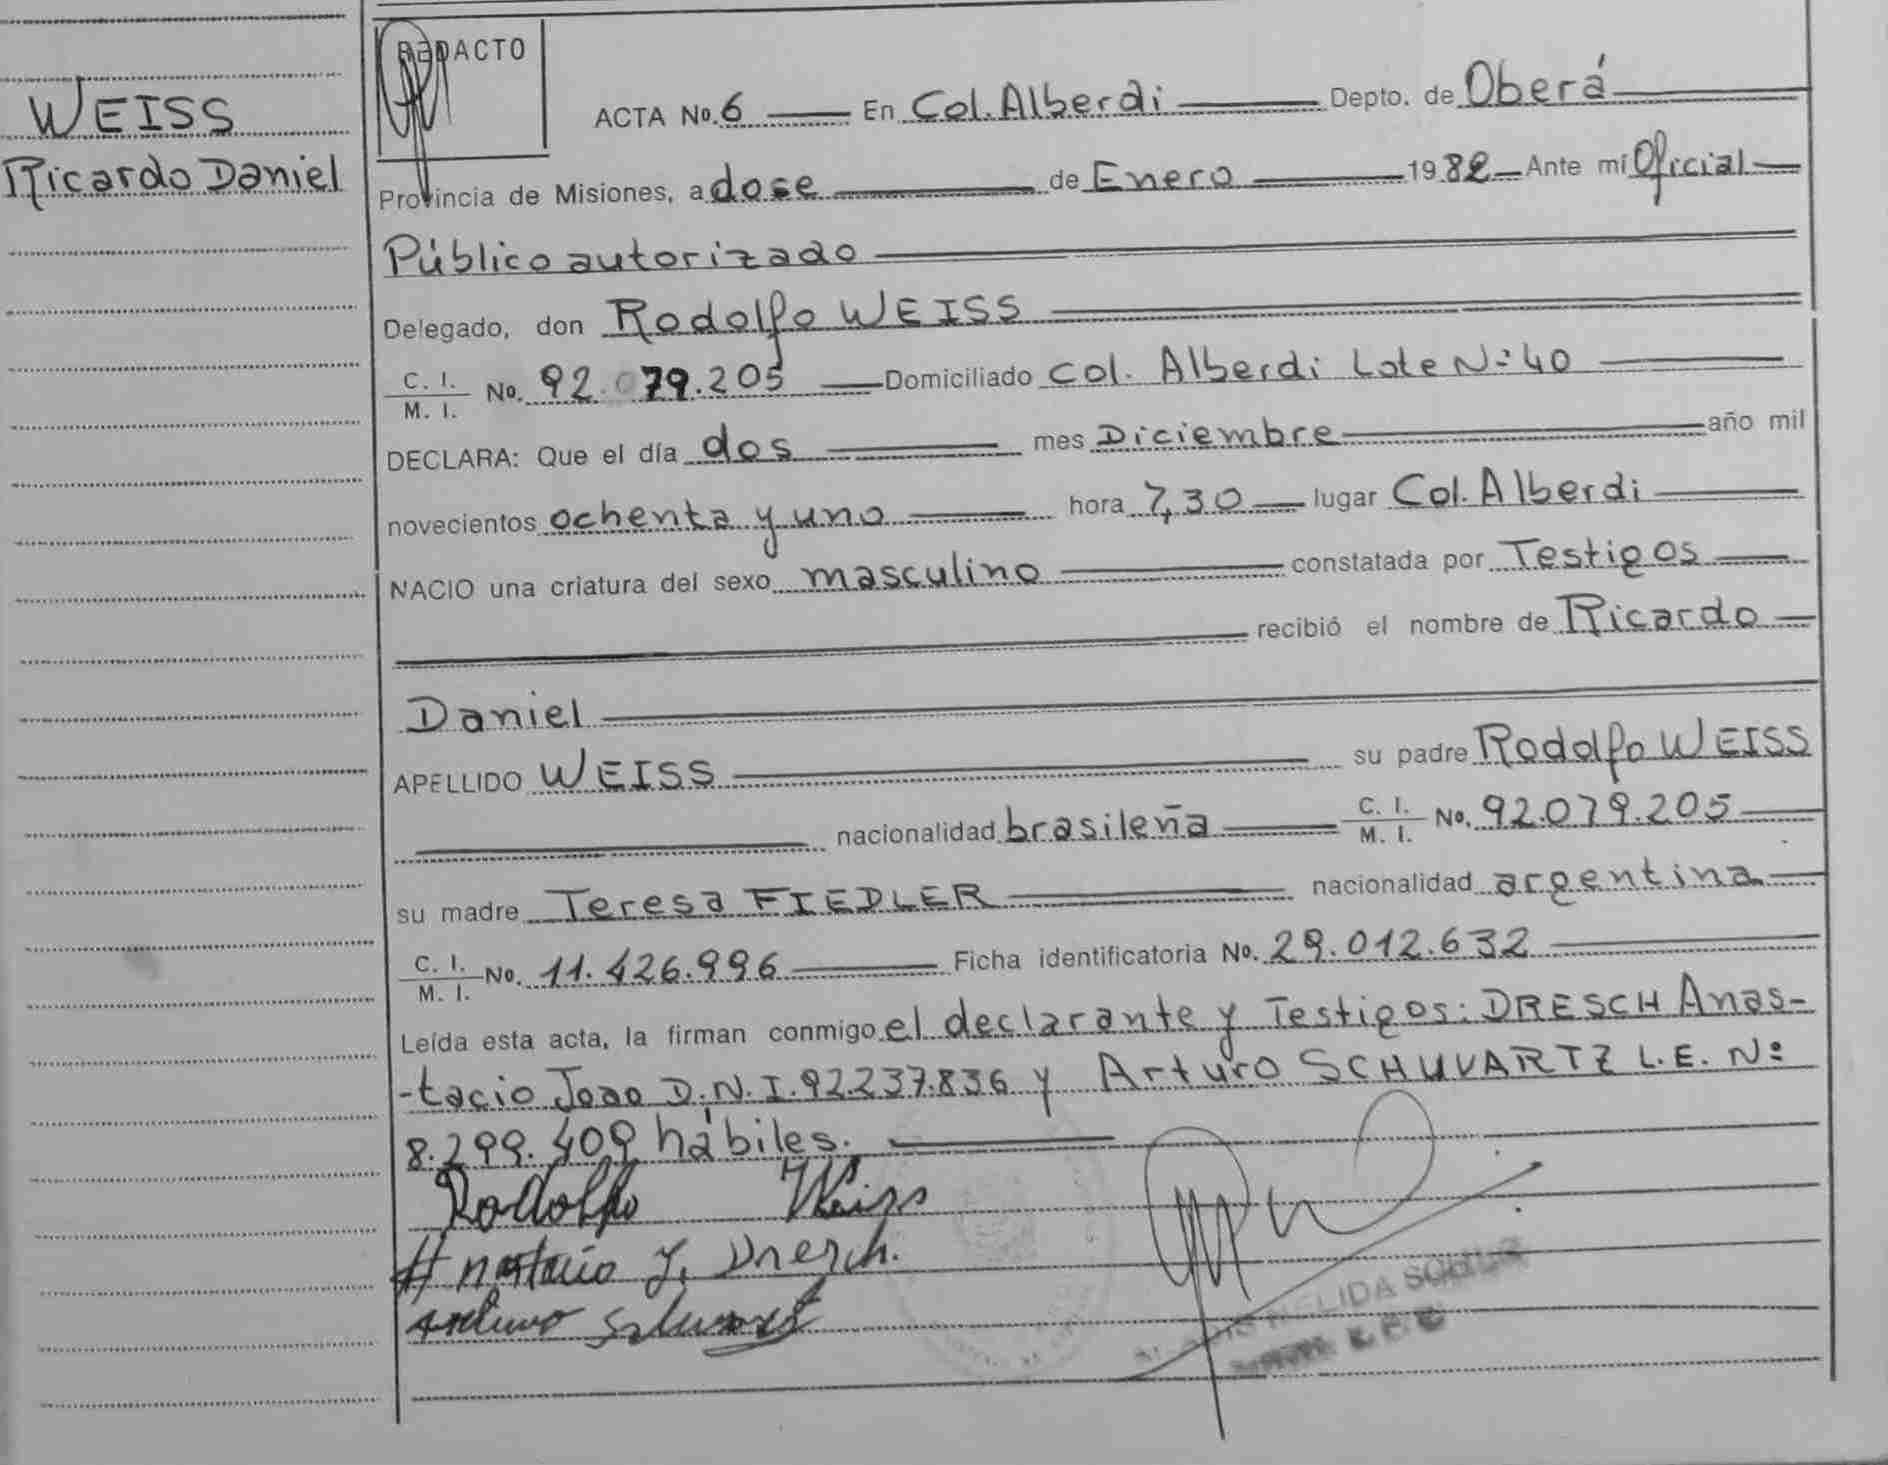 WEISS
Ricardo Daniel
REDACTO
ACTA No. 6 En Col. Alberdi Depto. de Oberá
Provincia de Misiones, a dose de Enero 1982 Ante mí Oficial
Público autorizado
Delegado, don Rodolfo WEISS
C. I. / M. I. No. 92.079.205 Domiciliado Col. Alberdi Lote Nº 40
DECLARA: Que el día dos mes Diciembre año mil
novecientos ochenta y uno hora 7,30 lugar Col. Alberdi
NACIO una criatura del sexo masculino constatada por Testigos
recibió el nombre de Ricardo
Daniel
APELLIDO WEISS su padre Rodolfo WEISS
nacionalidad brasileña C. I. / M. I. No. 92.079.205
su madre Teresa FIEDLER nacionalidad argentina
C. I. / M. I. No. 11.426.996 Ficha identificatoria No. 29.012.632
Leída esta acta, la firman conmigo el declarante y Testigos: DRESCH Anas-
-tacio Joao D.N.I. 92.237.836 y Arturo SCHUVARTZ L.E. Nº
8.299.409 hábiles.
Rodolfo Weiss
Anastacio J. Dresch.
NELIDA